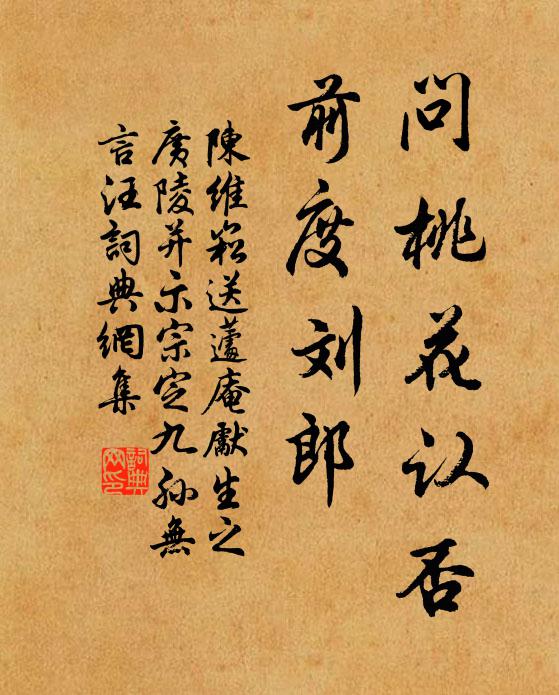 问桃花认否
前度刘郎
陳維崧送蘧庵獻生之
廣陵并示宗定九孙無
言汪詞典網集
詞典网印